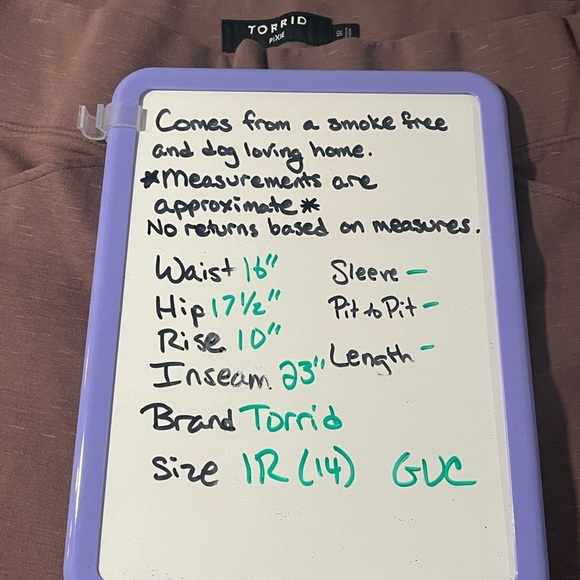 TORRID
PIXIE
Comes from a smoke free
and dog loving home.
*Measurements are
approximate*
No returns based on measures.
Waist 16" Sleeve -
Hip 17 1/2" Pit to Pit -
Rise 10"
Inseam 23" Length -
Brand Torrid
Size 1R (14) GUC